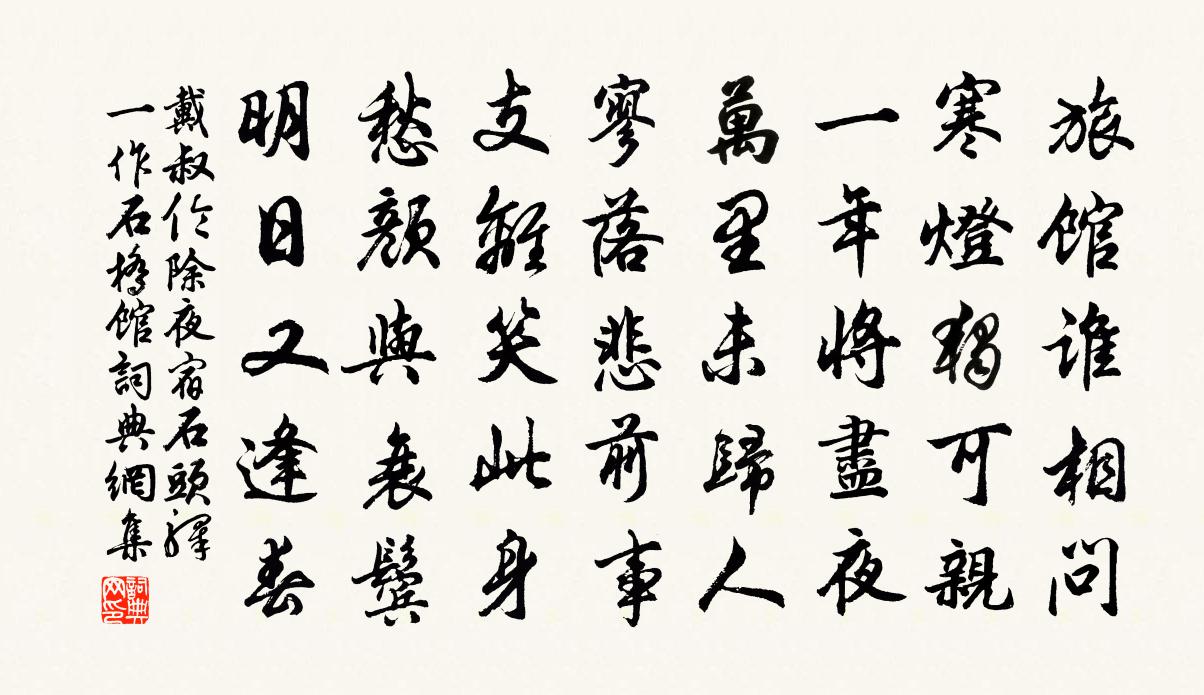 旅館誰相問
寒燈獨可親
一年將盡夜
萬里未歸人
寥落悲前事
支離笑此身
愁顏與衰鬢
明日又逢春
戴叔伦除夜宿石頭驛
一作石橋館詞典網集
詞典網印